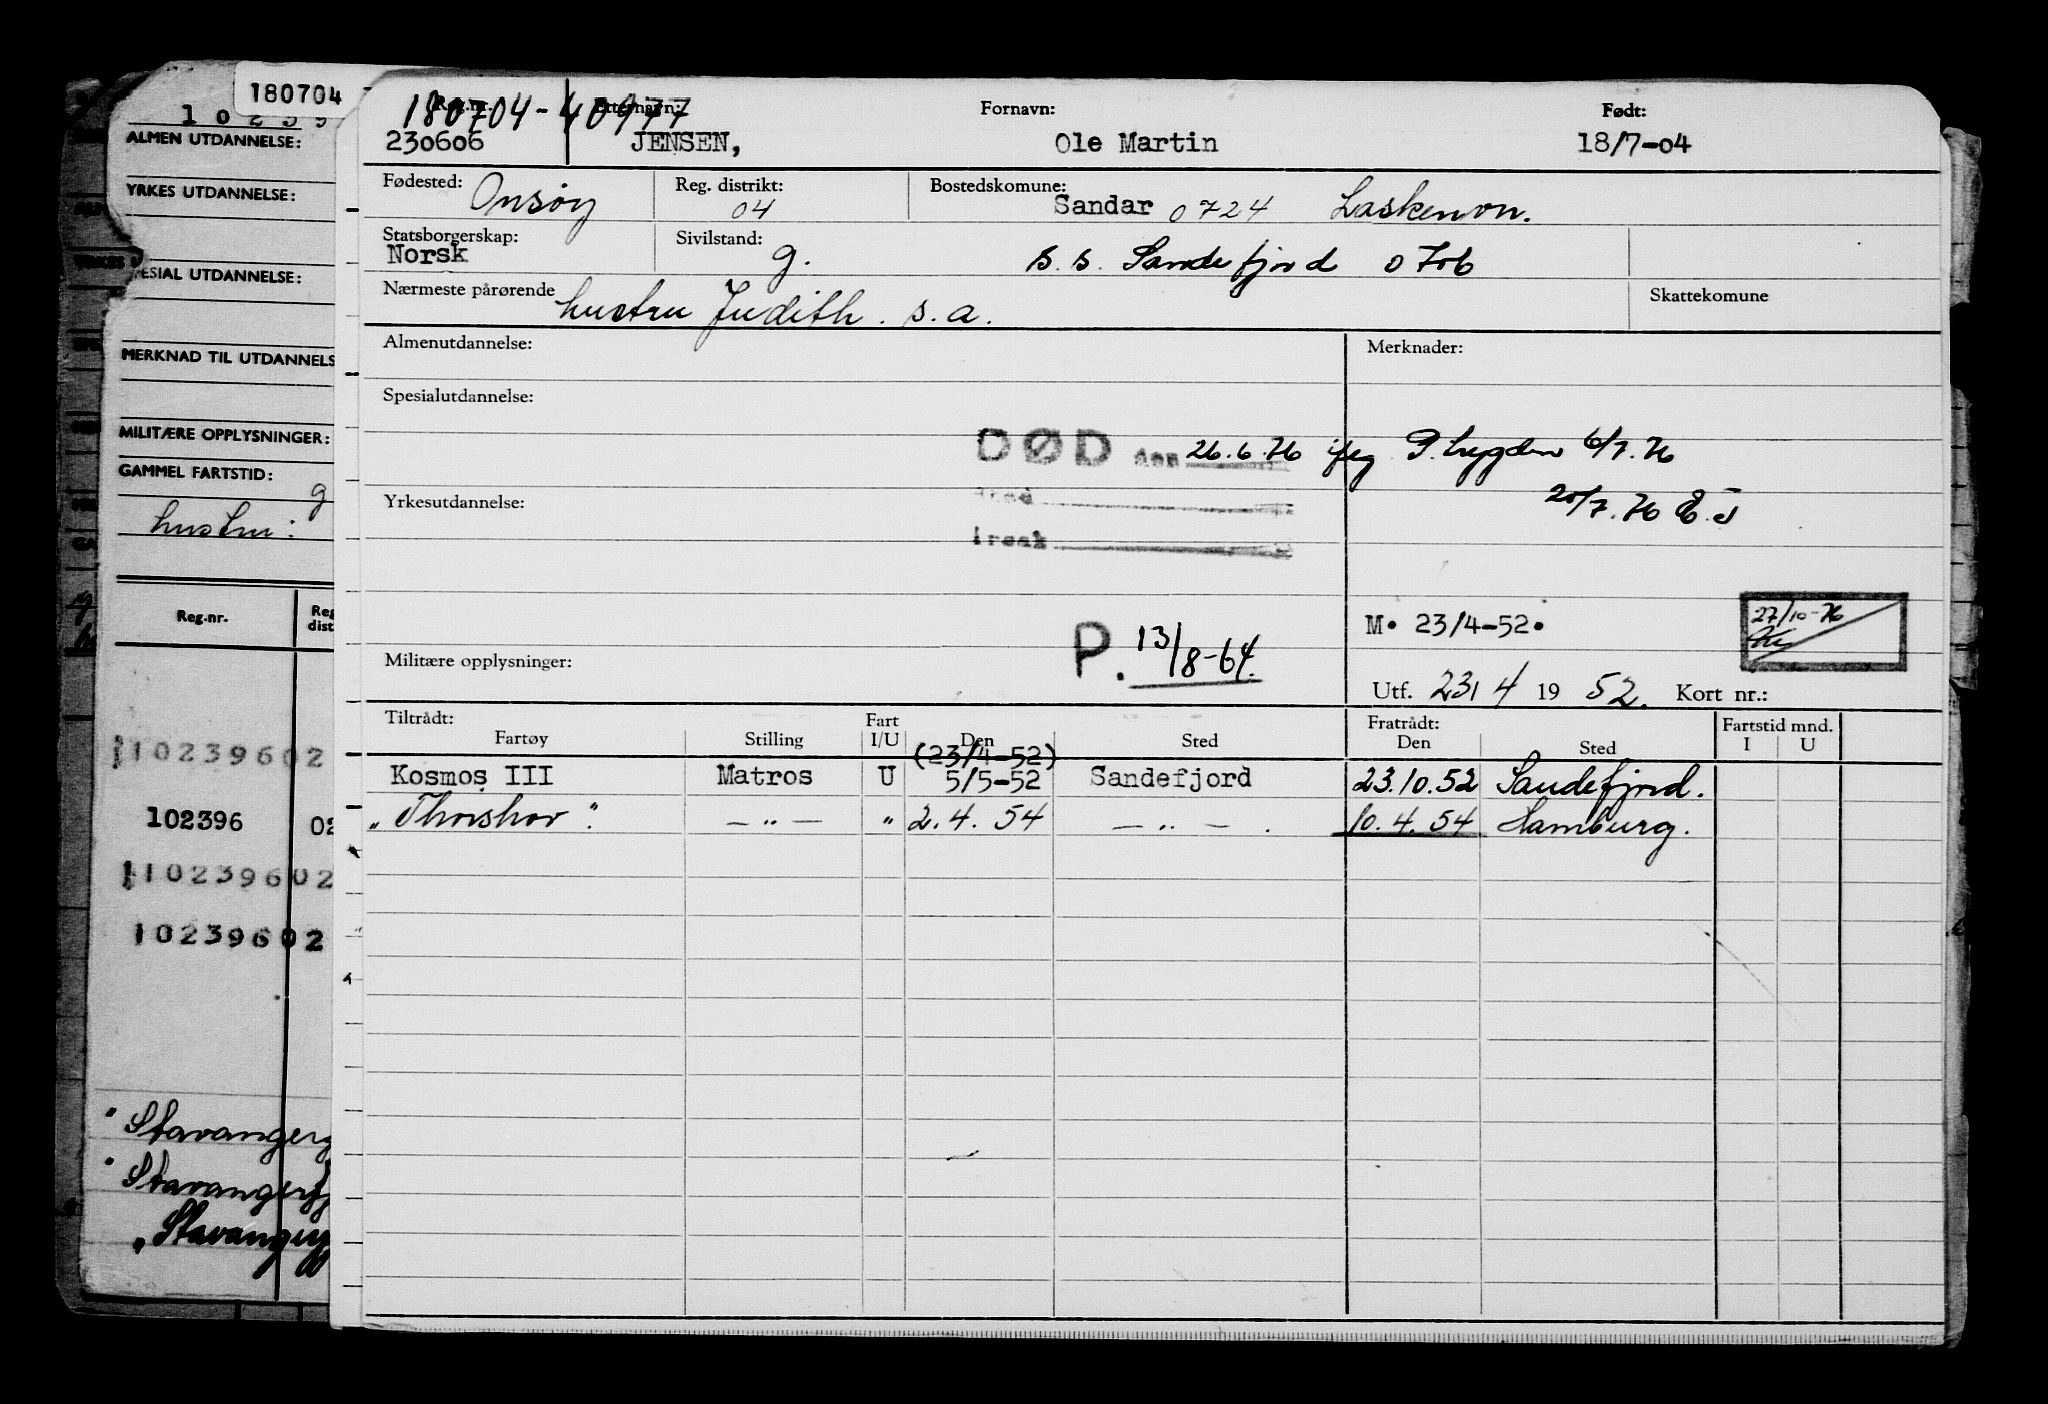 180704
10239
ALMEN UTDANNELSE:
YRKES UTDANNELSE:
ESIAL UTDANNELSE:
MERKNAD TIL UTDANNELS
MILITÆRE OPPLYSNINGER:
GAMMEL FARTSTID:
g
hustru:
Reg.nr.
Reg
dist
1023960 2
102396 02
1023960 2
1023960 2
"Stavangerf
"Stavangerfj
"Stavangerf
Reg.nr. Etternavn: Fornavn: Født:
180704-40977
230606 JENSEN, Ole Martin 18/7-04
Fødested: Onsøy Reg. distrikt: 04 Bostedskomune: Sandar 0724
Statsborgerskap: Norsk Sivilstand: g. B. B. Sandefjord 0706
Nærmeste pårørende hustru Judith. s.a. Skattekomune
Almenutdannelse: Merknader:
Spesialutdannelse:
DØD den 26.6.76 P.trygden 6/7.76
20/7.76
Yrkesutdannelse:
sted
årsak
M. 23/4-52. 27/10-76
Militære opplysninger: P. 13/8-64.
Utf. 23/4 1952. Kort nr.:
Tiltrådt: Fart Fratrådt: Fartstid mnd.
Fartøy Stilling I/U Den Sted Den Sted I U
(23/4-52)
Kosmos III Matros U 5/5-52 Sandefjord 23.10.52 Sandefjord.
"Thorshov". — " — " 2.4.54 — " — . 10.4.54 Hamburg.